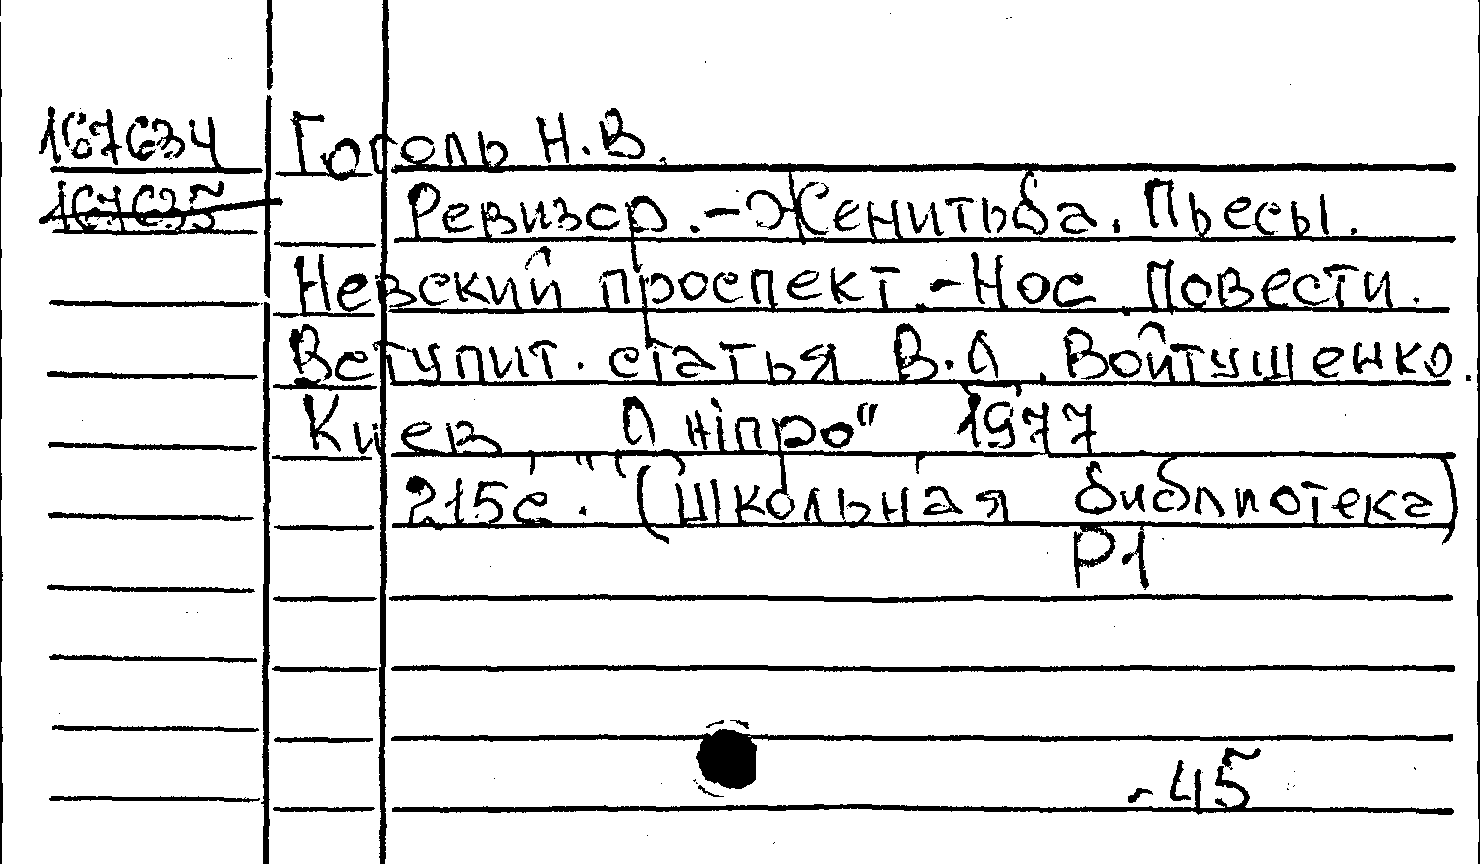 167634 Гоголь Н.В.
167635 Ревизор. - Женитьба. Пьесы.
Невский проспект. - Нос. Повести.
Вступит. статья В.Л. Войтушенко.
Киев, "Дніпро", 1977
215с. (Школьная библиотека)
Р1
-45